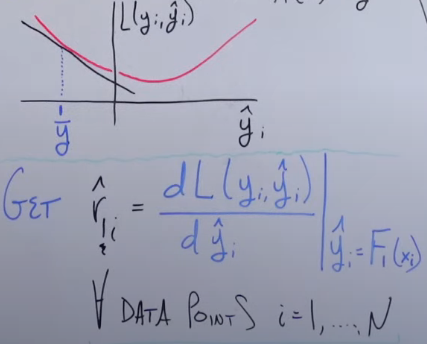 L(yᵢ, ŷᵢ)
ŷᵢ
ȳ
GET r̂₁ᵢ = dL(yᵢ, ŷᵢ) / dŷᵢ | ŷᵢ = F₁(xᵢ)
∀ DATA POINTS i = 1, ...., N